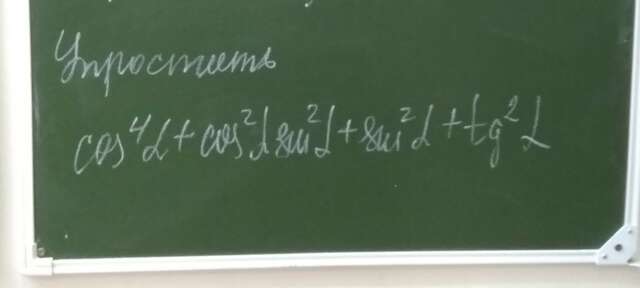 Упростить
cos⁴α + cos²α sin²α + sin²α + tg²α